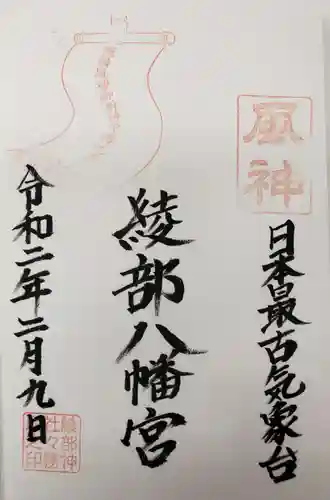 風神
日本最古気象台
綾部八幡宮
令和二年二月九日
綾部神社々務所之印